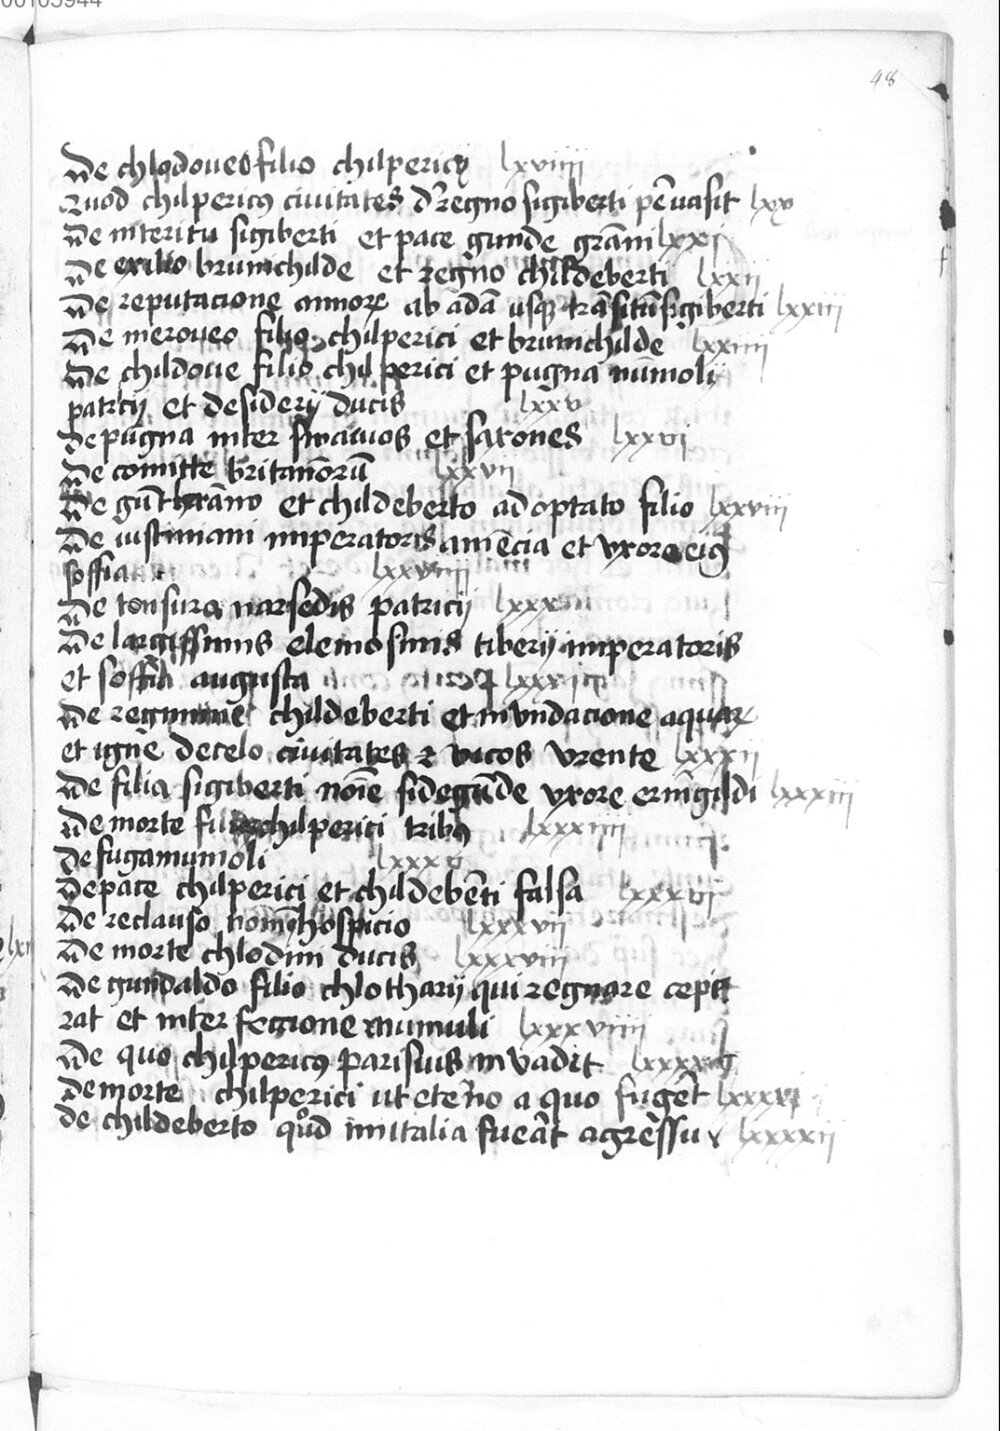 00103944
48
De chlodoueo filio chilpericij lxviiii
Quod chilpericus ciuitates de regno sigiberti peruasit lxx
De interitu sigiberti et pace gunde grāni lxxi
De exilio brunichilde et regno childeberti lxxii
De reputacione annorꝝ ab adā usqꝫ trāsitū sigiberti lxxiii
De meroueo filio chilperici et brunichilde lxxiiii
De childoue filio chilperici et pugna nūmoli
patricij et desiderij ducis lxxv
de pugna inter suauos et saxones lxxvi
De comitte britanorū lxxvii
De gūthrāno et childeberto adoptato filio lxxviii
De iustiniani imperatoris amēcia et vxore eiꝰ
soffia lxxviiii
De tonsura narsedis patricij lxxx
De largissimis elemosinis tiberij imperatoris
et soffia augusta lxxxi
De regimine childeberti et invndacione aquaꝝ
et igne de celo ciuitates ⁊ vicos vrente lxxxii
De filia sigiberti noīe sidegūde vxore ermīgildi lxxxiii
De morte filiis chilperici tribꝰ lxxxiiii
de fuga mumoli lxxxv
De pace chilperici et childeberti falsa lxxxvi
De reclauso hospicio lxxxvii
De morte chlodini ducis lxxxviii
De gundaldo filio chlotharij qui regnare cepe
rat et interfectione mumuli lxxxviiii
De quo chilpericus parisius invadit lxxxx
de morte chilperici ut eteño a quo fugēt lxxxxi
de childeberto quod in italia fuerāt agressu lxxxxii